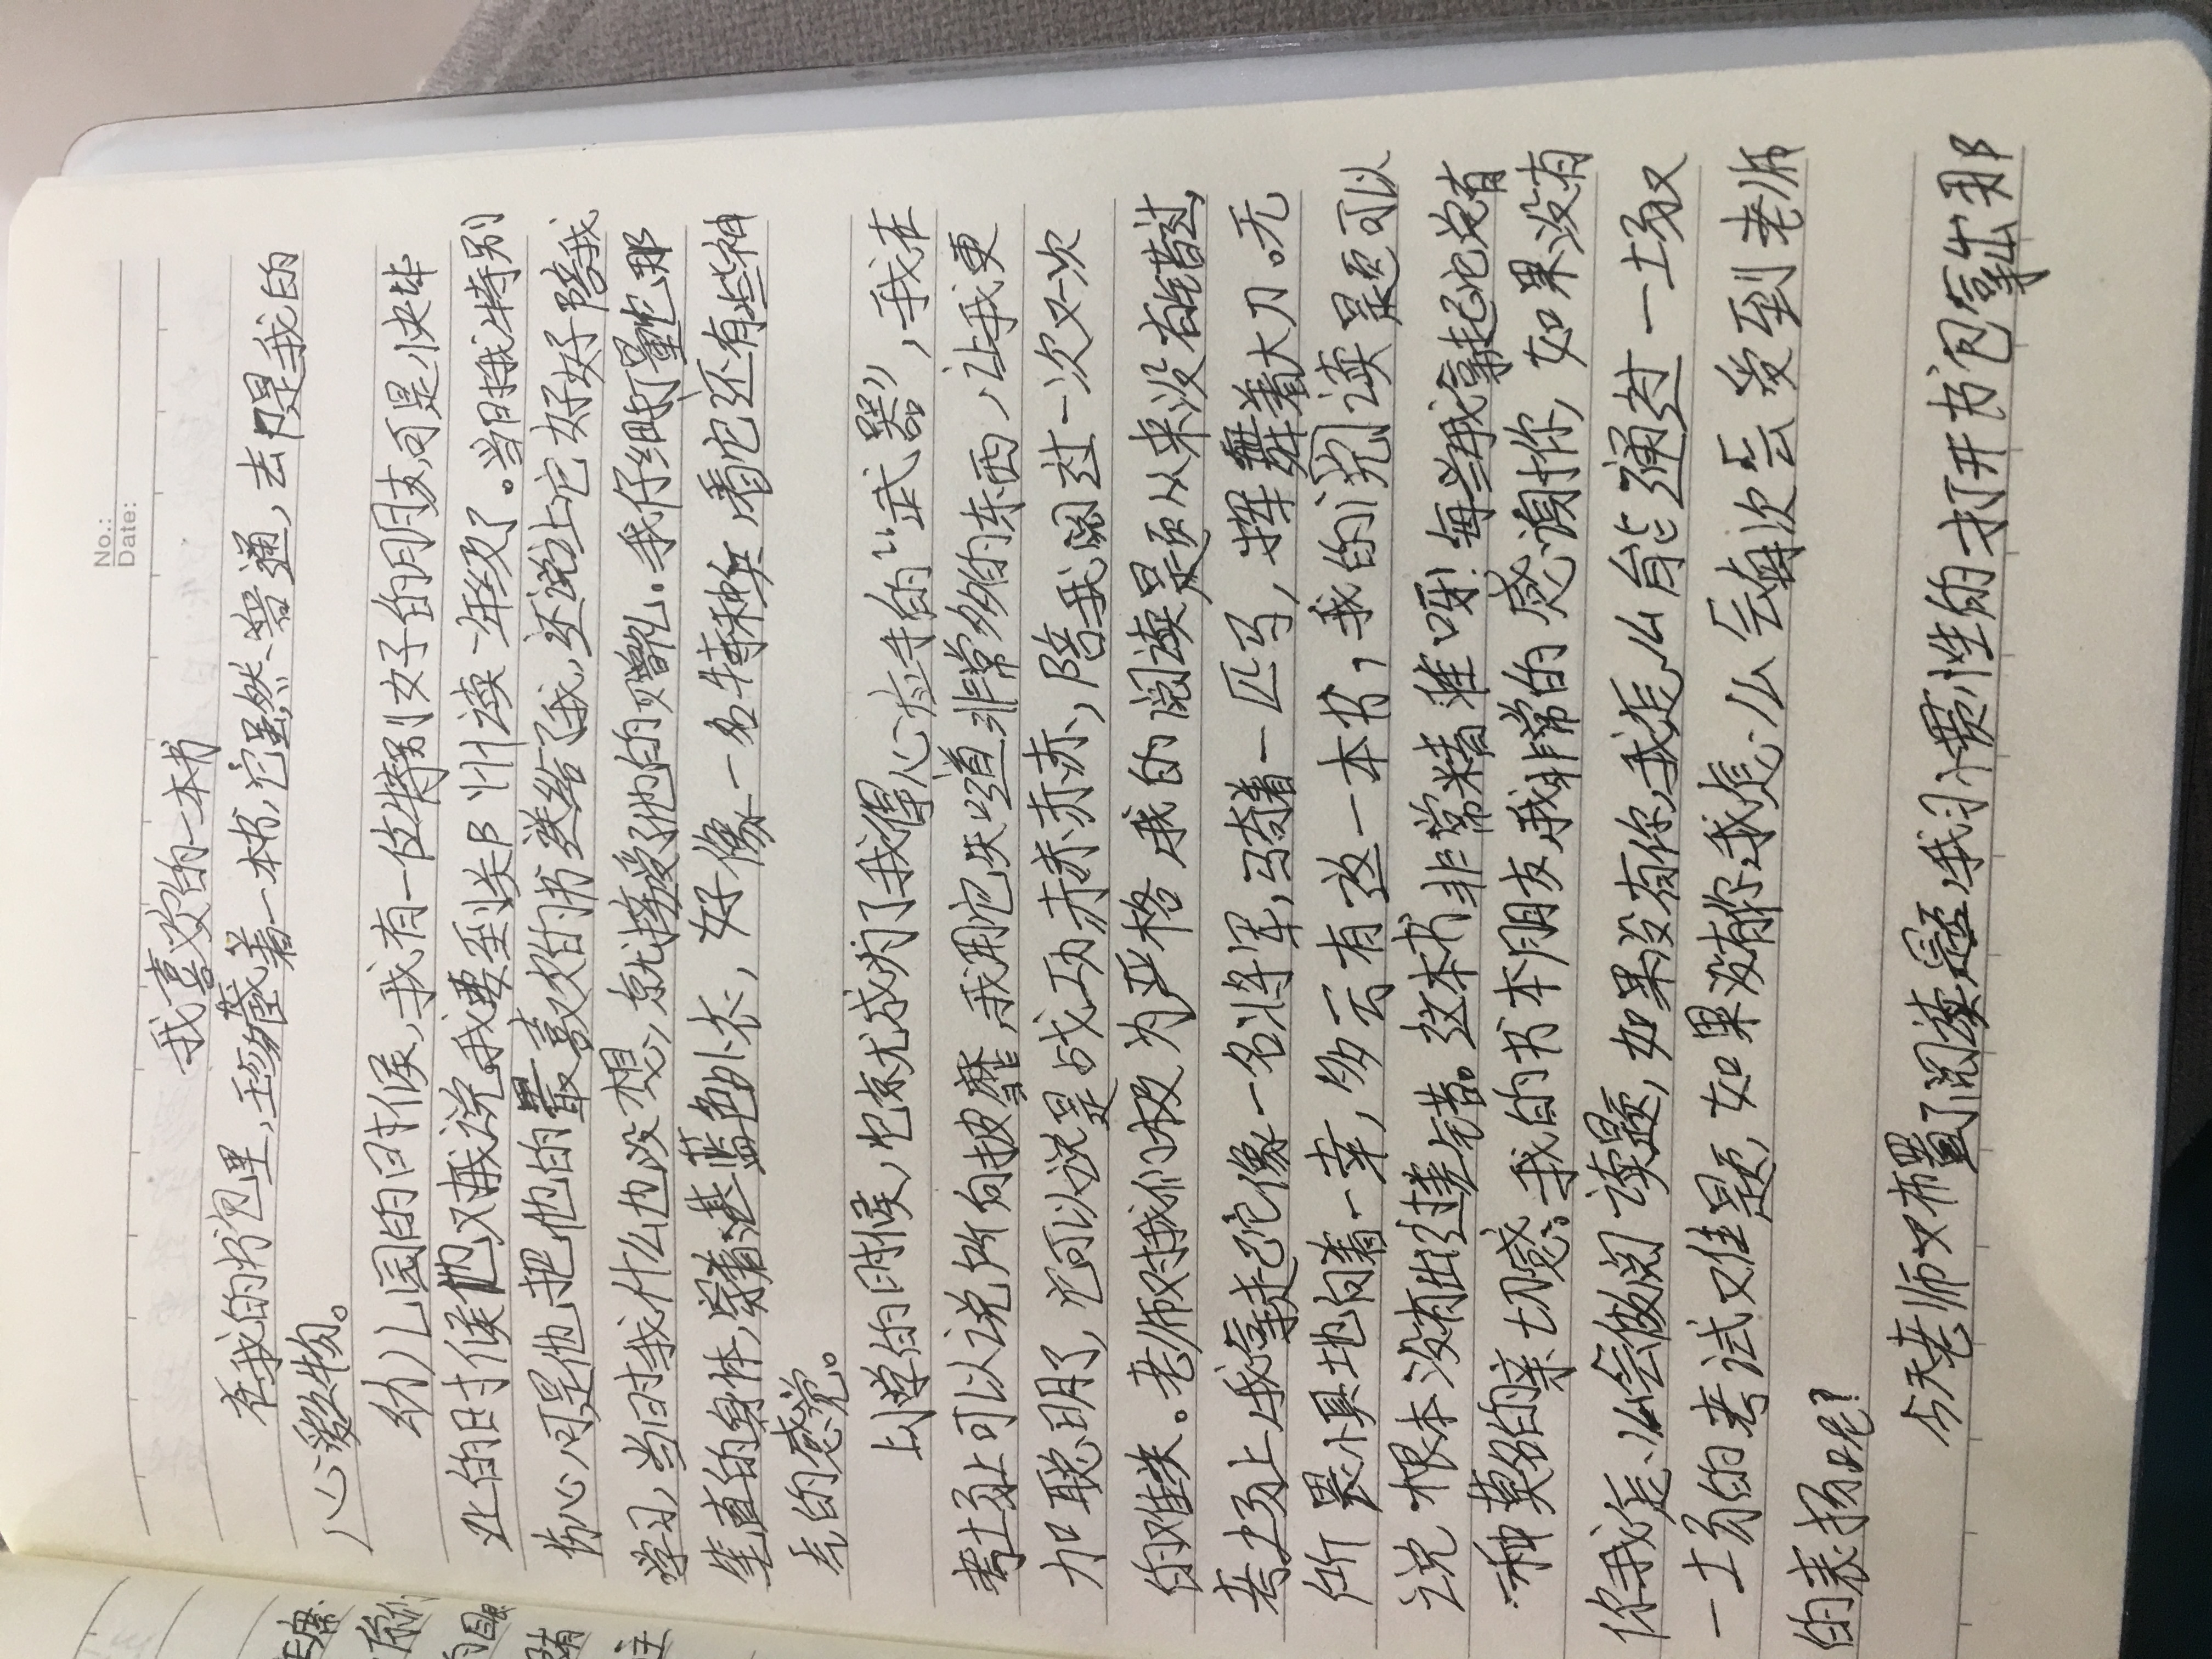 No.:
Date:
我喜欢的一本书
在我的书包里,珍藏着一本书,它虽然普通,去卩是我的
心爱物。
幼儿园的时候,我有一位特别好的朋友,可是,快毕
业的时候他对我说,我要到郑州读一年级了。当时我特别
伤心,可是他把他的最喜欢的书送给了我,还说让它好好陪我
学习,当时我什么也没想,就接受了他的赠礼。我仔细打量它那
笔直的身体,穿着湛蓝色外衣,好像一名特种兵,看它还有些神
秀的感觉。
上学的时候,它就成为了我得心应手的“武器”,我在
考场上可以说所向披靡,我用它知道非常多的东西,让我更
加聪明了,它可以说是战功赫赫,陪我闯过一次又一次
的难关。老师对我们极为严格,我的阅读题从来没有错过,
考场上我拿起它像一名将军,马奇着一匹马,挥舞着大刀。无
所畏惧地向着一幸,多亏有这一本书,我的阅读题可以
说根本没有出过差错。这本书非常精准呀!每当我拿起它总有
一种莫名的亲切感。我的书本朋友,我非常的感谢你,如果没有
你我怎么会做阅读题,如果没有你,我怎么能通过一场又
一场的考试又难题,如果没有你,我怎么会每次会受到老师
的表扬呢?
今天老师又布置了阅读题,我习惯性的打开书包拿出那